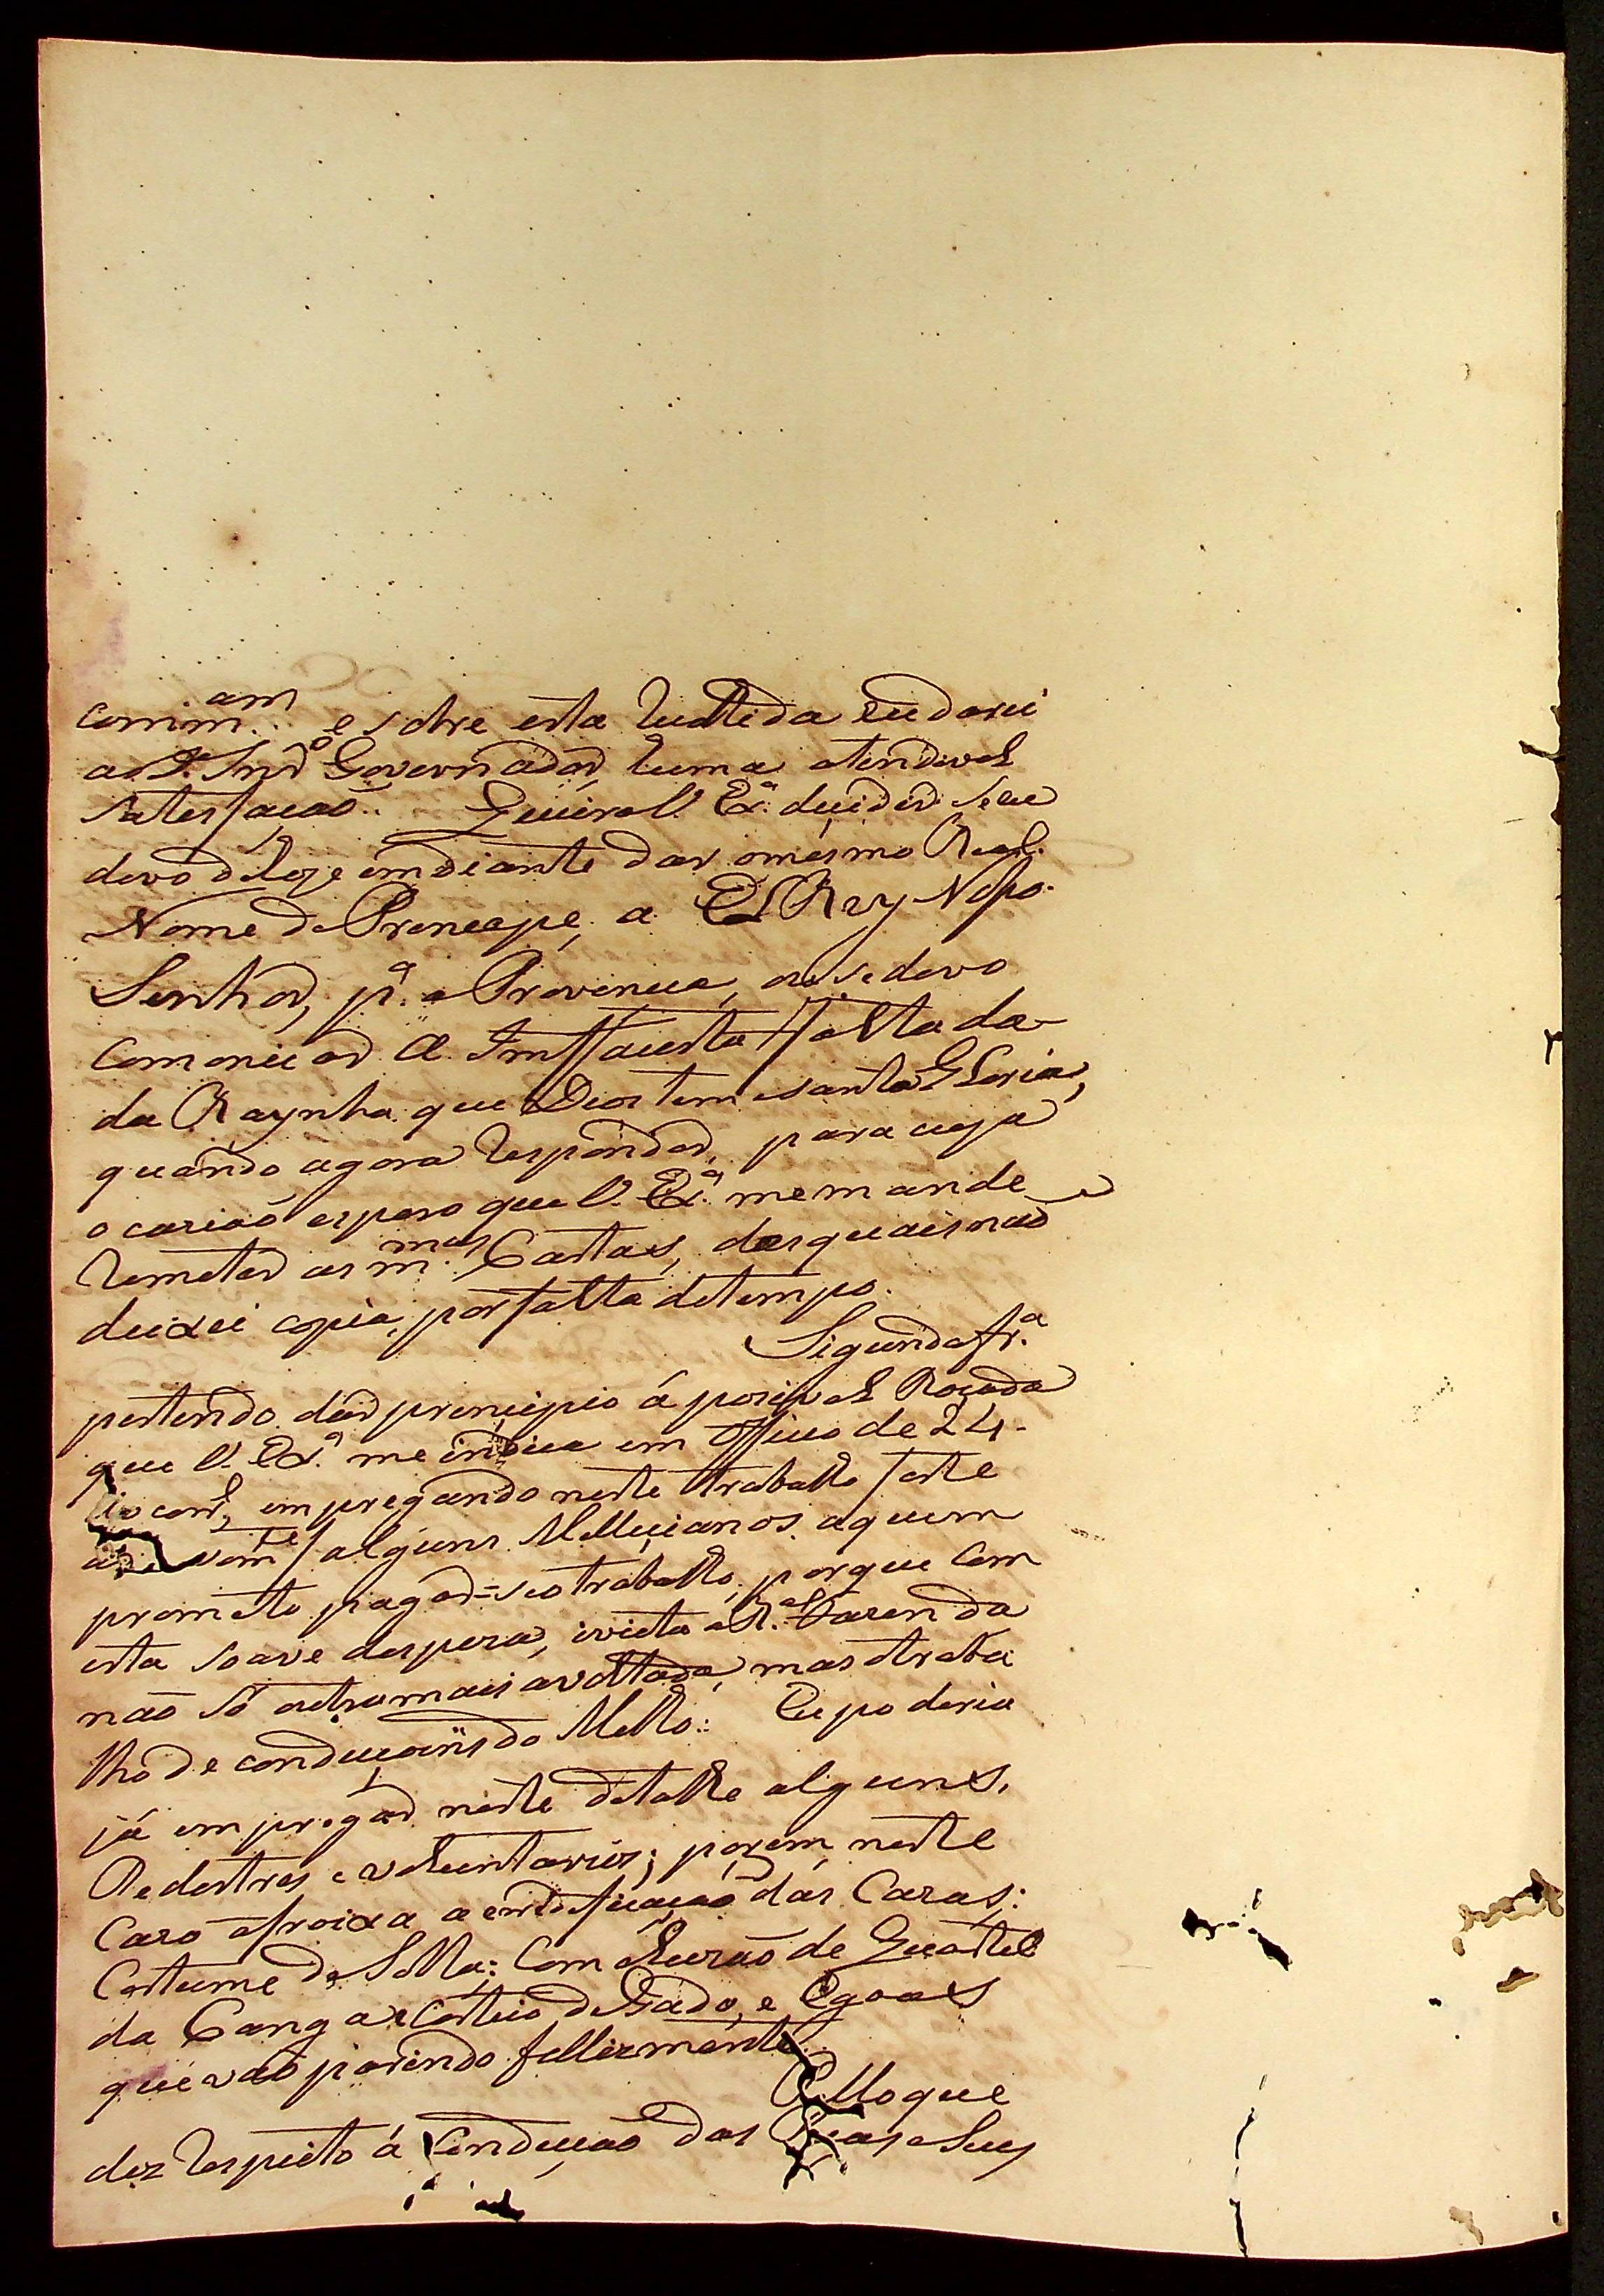 comim.am e sobre esta hultida eu darei
ao D.o Snr Governador huma atendivel
satesfaçaõ. Queira V. Ex.a decidir se eu
devo d'hoje emdiante dar o mesmo Real.
Nome de Prencepe, a El Rey Nosso
Senhor, p.a a Provincia, ou se devo
comonicar a Imffausta ffalta da
da Raynha que Deos tem e santa Gloria,
quando agora responder, para cuja
ocaziaõ espero que V. Ex.a me mande
remeter as m.mas Cartas, das quais naõ
deixei copia, por falta de tempo.
Sigunda fr.a
pertendo dar prencipio á possivel Roçada
que V. Ex.a me indica em Officio de 24
do corr.e, empregando neste trabalho /
alguns Melliçianos aquem
prometo pagar=se o trabalho, porque com
esta soave despeza, ivita a R.al Fazenda
naõ só outra mais avultada, mas o traba
lho de conduçoins do Milho. Eu poderia
já empregar neste detalhe alguns
Pedestres e volluntarios; porem neste
cazo afroixa a eredificaçaõ das Cazas:
Costume de Sella: Comcluzaõ de Quartel
da Canga e Custeio de Gado, e Egoas
que vaõ parindo fellizmente.
Pello que
diz respeito á Conduçaõ das e Sues